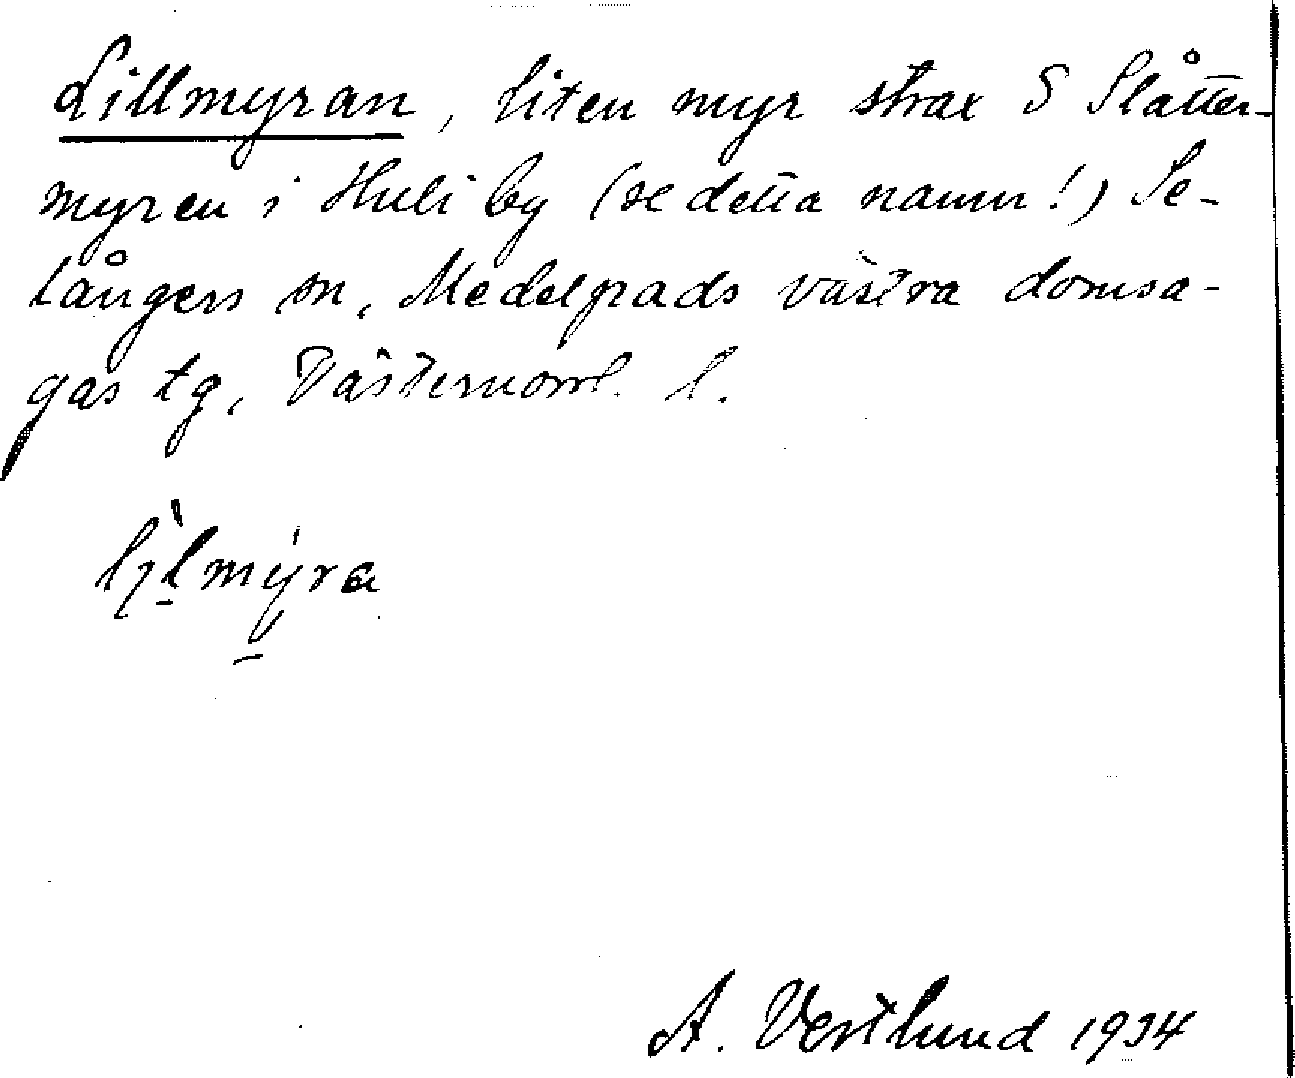 Lillmyran, liten myr strax S Slåtter-
myren i Huli by (se detta namn!) Se-
långers sn, Medelpads västra domsa-
gas tg, Västernorrl. l.
lìlmýra
A. Vestlund 1934